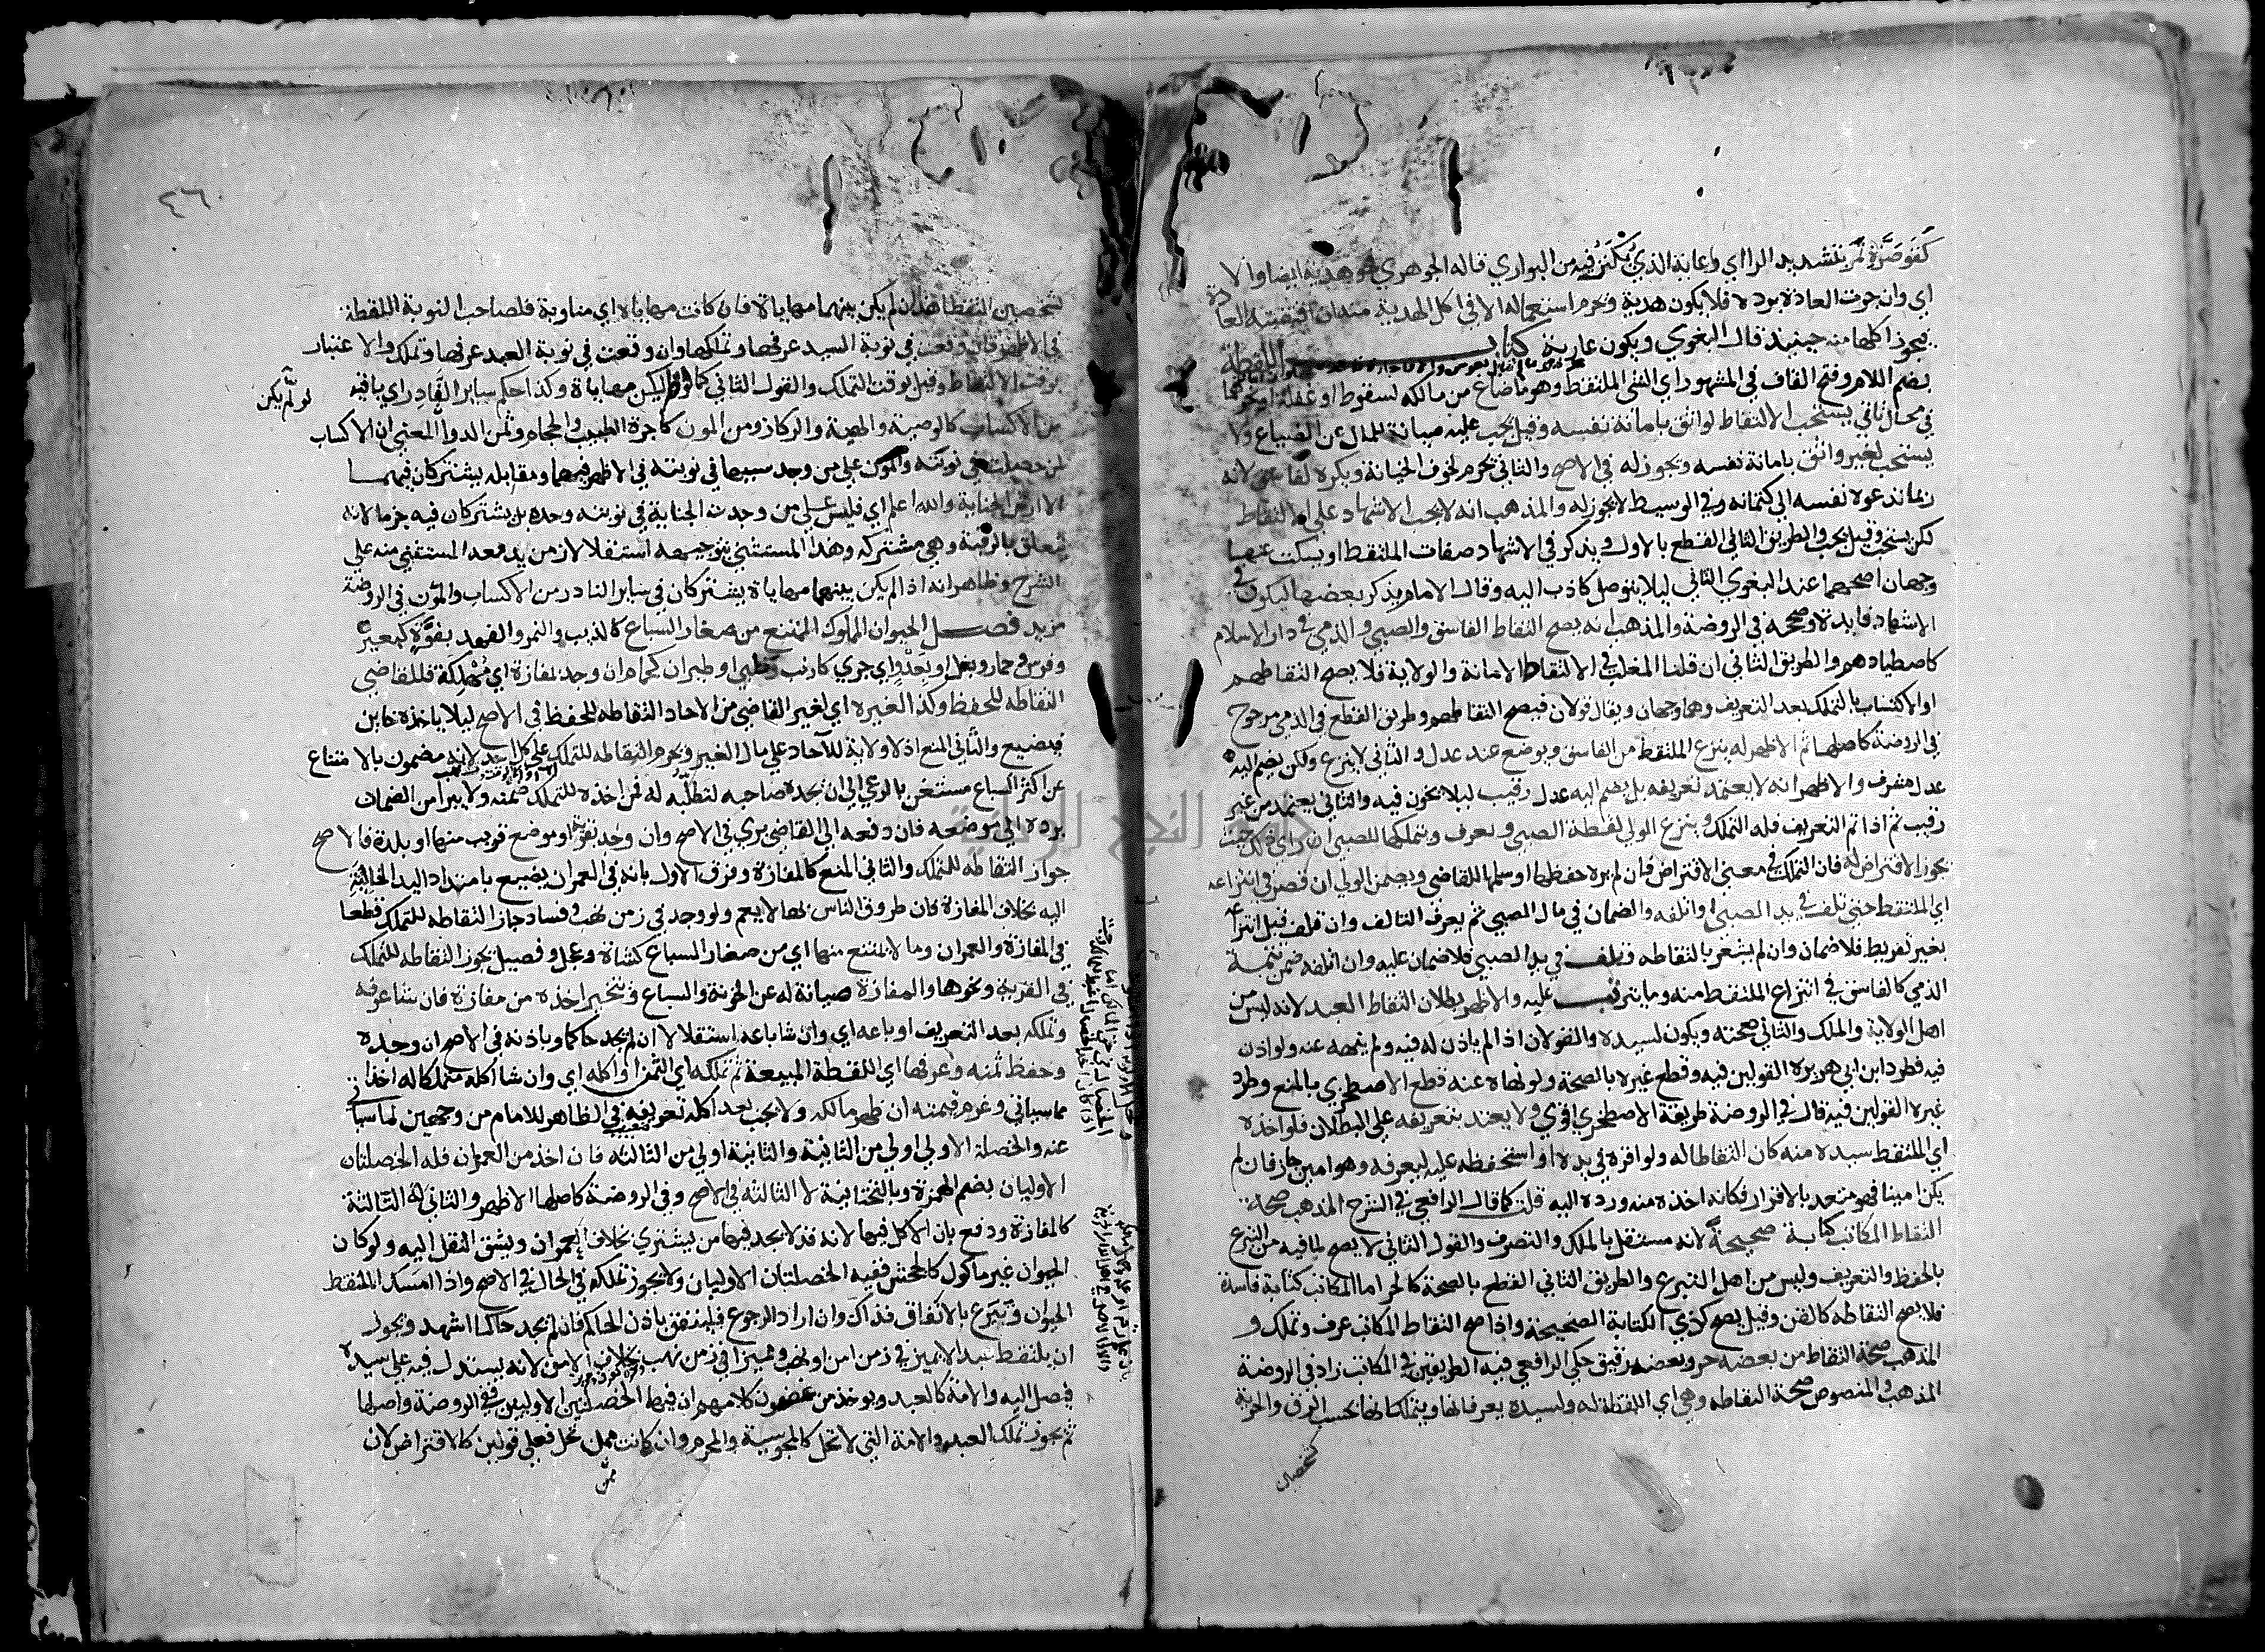 كقوصرة تمر بتشديد الراء اي وعائه الذي يكنز فيه من البواري قاله الجوهري فهو هدية ايضا والا
اي وان جرت العادة برده فلا يكون هدية ويحرم استعماله الا في اكل الهدية منه ان اقتضته العادة
فيجوز اكلها منه حينئذ قال البغوي ويكون عارية كتاب اللقطة
بضم اللام وفتح القاف في المشهور اي الشي الملتقط وهو ما ضاع من مالكه لسقوط او غفلة او نحوهما
ياتي يستحب الالتقاط لواثق بامانة نفسه وقيل يجب عليه صيانة للمال عن الضياع ولا
يستحب لغير واثق بامانة نفسه ويجوز له في الاصح والثاني يحرم لخوف الخيانة ويكره لفاسق لانه
ربما تدعوه نفسه الى كتمانه وفي الوسيط لا يجوز له والمذهب انه لا يجب الاشهاد على الالتقاط
لكن يستحب وقيل يجب والطريق الثاني القطع بالاول ويذكر في الاشهاد صفات الملتقط او يسكت عنها
وجهان اصحهما عند البغوي الثاني ليلا يتوصل كاذب اليه وقال الامام يذكر بعضها ليكون في
الاشهاد فايدة وصححه في الروضة والمذهب انه يصح التقاط الفاسق والصبي والذمي في دار الاسلام
كاصطيادهم والطريق الثاني ان قلنا المغلب في الالتقاط الامانة والولاية فلا يصح التقاطهم
او الاكتساب بالتملك بعد التعريف وهما وجهان ويقال قولان فيصح التقاطهم وطريق القطع في الذمي مرجوح
في الروضة كاصلها ثم الاظهر له ينزع الملتقط من الفاسق ويوضع عند عدل والثاني لا ينزع ولكن يضم اليه
عدل مشرف والاظهر انه لا يعتمد تعريفه بل يضم اليه عدل رقيب ليلا يخون فيه والثاني يعتمد من غير
رقيب ثم اذا تم التعريف فله التملك وينزع الولي لقطة الصبي ويعرف ويتملكها للصبي ان راى ذلك حيث
يجوز الاقتراض له فان التملك في معنى الاقتراض فان لم يره حفظها او سلمها للقاضي ويضمن الولي ان قصر في انتزاعه
اي الملتقط حتى تلف في يد الصبي او اتلفه والضمان في مال الصبي ثم يعرف التالف وان تلف قبل انتزاعه
بغير تفريط فلا ضمان وان لم يشعر بالتقاطه وتلف في يد الصبي فلا ضمان عليه وان اتلفه ضمن تتمة
الذمي كالفاسق في انتزاع الملتقط منه وما يترتب عليه والاظهر بطلان التقاط العبد لانه ليس من
اهل الولاية والملك والثاني صحته ويكون لسيده والقولان اذا لم ياذن له فيه ولم ينهه عنه ولو اذن
فيه فطرد ابن ابي هريرة القولين فيه وقطع غيره بالصحة ولو نهاه عنه قطع الاصطخري بالمنع وطرد
غيره القولين فيه قال في الروضة طريقة الاصطخري اقوى ولا يعتد بتعريفه على البطلان فلو اخذه
اي الملتقط سيده منه كان التقاطا له ولو اقره في يده او استحفظه عليه ليعرفه وهو امين جاز فان لم
يكن امينا فهو متعد بالاقرار فكانه اخذه منه ورده اليه قلت كما قال الرافعي في الشرح المذهب صحة
التقاط المكاتب كتابة صحيحة لانه مستقل بالملك والتصرف والقول الثاني لا يصح لما فيه من التبرع
بالحفظ والتعريف وليس من اهل التبرع والطريق الثاني القطع بالصحة كالحر اما المكاتب كتابة فاسدة
فلا يصح التقاطه كالقن وقيل يصح كذي الكتابة الصحيحة واذا صح التقاط المكاتب عرف وتملك و
المذهب صحة التقاط من بعضه حر وبعضه رقيق حكى الرافعي فيه الطريقين في المكاتب زاد في الروضة
المذهب والمنصوص صحة التقاطه وهي اي اللقطة له ولسيده يعرفانها ويتملكانها بحسب الرق والحرية
كشخصين
٤٦
كشخصين التقطا هذا ان لم يكن بينهما مهاياة فان كانت مهاياة اي مناوبة فلصاحب النوبة اللقطة
في الاظهر فان وقعت في نوبة السيد عرفها وتملكها وان وقعت في نوبة العبد عرفها وتملك والاعتبار
بوقت الالتقاط وقيل بوقت التملك والقول الثاني كما لو لم يكن مهاياة وكذا حكم ساير النادر اي باقيه
لو لم يكن
من الاكساب كالوصية والهبة والركاز ومن المون كاجرة الطبيب والحجام وثمن الدوا المعنى ان الاكساب
لمن حصلت في نوبته والمون على من وجد سببها في نوبته في الاظهر فيهما ومقابله يشتركان فيهما
الا ارش الجناية والله اعلم اي فليس على من وجدت الجناية في نوبته وحده بل يشتركان فيه جزما لانه
يتعلق بالرقبة وهي مشتركة وهذا المستثنى بتوجيهه استقلالا من يد معه المستثنى منه على
الشرح وظاهر انه اذا لم يكن بينهما مهاياة يشتركان في ساير النادر من الاكساب والمون في الروضة
مزيد فصل الحيوان المملوك الممتنع من صغار السباع كالذيب والنمر والفهد بقوة كبعير
وفرس وحمار وبغل او بعدو اي جري كارنب وظبي او طيران كحمام ان وجد بمفازة اي مهلكة فللقاضي
التقاطه للحفظ وكذا لغيره اي لغير القاضي من الاحاد التقاطه للحفظ في الاصح ليلا ياخذه خاين
فيضيع والثاني المنع اذ لا ولاية للآحاد على مال الغير ويحرم التقاطه للتملك على كل احد لانه مصون بالامتناع
عن اكثر السباع مستغن بالرعي الى ان يجده صاحبه لتطلبه له فمن اخذه للتملك ضمنه ولا يبرا من الضمان
برده الى موضعه فان دفعه الى القاضي بري في الاصح وان وجد بقرية او موضع قريب منها او بلدة فالاصح
جواز التقاطه للتملك والثاني المنع كالمفازة وفرق الاول بانه في العمران يضيع بامتداد اليد الخاينة
اليه بخلاف المفازة فان طروق الناس بها لا يعم ولو وجد في زمن نهب وفساد جاز التقاطه للتملك قطعا
في المفازة والعمران وما لا يمتنع منها اي من صغار السباع كشاة وعجل وفصيل يجوز التقاطه للتملك
في القرية ونحوها والمفازة صيانة له عن الخونة والسباع ويتخير اخذه من مفازة فان شا عرفه
وتملكه بعد التعريف او باعه اي وان شا باعه استقلالا ان لم يجد حاكما وباذنه في الاصح ان وجده
وحفظ ثمنه وعرفها اي اللقطة المبيعة ثم تملكه اي الثمن او اكله اي وان شا اكله متملكا له اخذا
مما سياتي وغرم قيمته ان ظهر مالكه ولا يجب بعد اكله تعريفه في الظاهر للامام من وجهين لما سياتي
عنه والخصلة الاولى اولى من الثانية والثانية اولى من الثالثة فان اخذ من العمران فله الخصلتان
الاوليان بضم الهمزة وبالتحتانية لا الثالثة في الاصح وفي الروضة كاصلها الاظهر والثاني له الثالثة
كالمفازة ودفع بان الاكل فيها لانه قد لا يجد فيها من يشتري بخلاف العمران ويشق النقل اليه ولو كان
الحيوان غير ماكول كالجحش ففيه الخصلتان الاوليان ولا يجوز تملكه في الحال في الاصح واذا امسك الملتقط
الحيوان وتبرع بالانفاق فذاك وان اراد الرجوع فلينفق باذن الحاكم فان لم يجد حاكما اشهد ويجوز
ان يلتقط عبدا لا يميز في زمن امن او نهب ومميزا في زمن نهب بخلاف الامن لانه يستدل فيه على سيده
فيصل اليه والامة كالعبد ويوخذ من غضون كلامهم ان فيها الخصلتين الاوليين ففي الروضة واصلها
ثم يجوز تملك العبد والامة التي لا تحل كالمجوسية والمحرم وان كانت ممن تحل فعلى قولين كالاقتراض لان
ممن